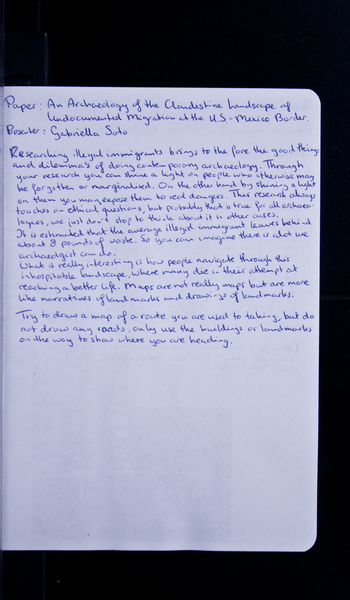 Paper: An Archaeology of the Clandestine Landscape of
Undocumented Migration at the U.S-Mexico Border.
Presenter: Gabriella Soto
Researching illegal immigrants brings to the fore the good things
and dilemma's of doing contemporary archaeology. Through
your research you can shine a light on people who otherwise may
be forgotten or marginalised. On the other hand by shining a light
on them you may expose them to real dangers. This research always
touches on ethical questions, but probably that is true for all archaeo-
logies, we just don't stop to think about it in other cases.
It is estimated that the average illegal immigrant leaves behind
about 8 pounds of waste. So you can imagine there is a lot we
archaeologist can do.
What is really interesting is how people navigate through this
inhospitable landscape, where many die in their attempt at
reaching a better life. Maps are not really maps but are more
like narratives of landmarks and drawings of landmarks.
Try to draw a map of a route you are used to taking, but do
not draw any roads, only use the buildings or landmarks
on the way to show where you are heading.